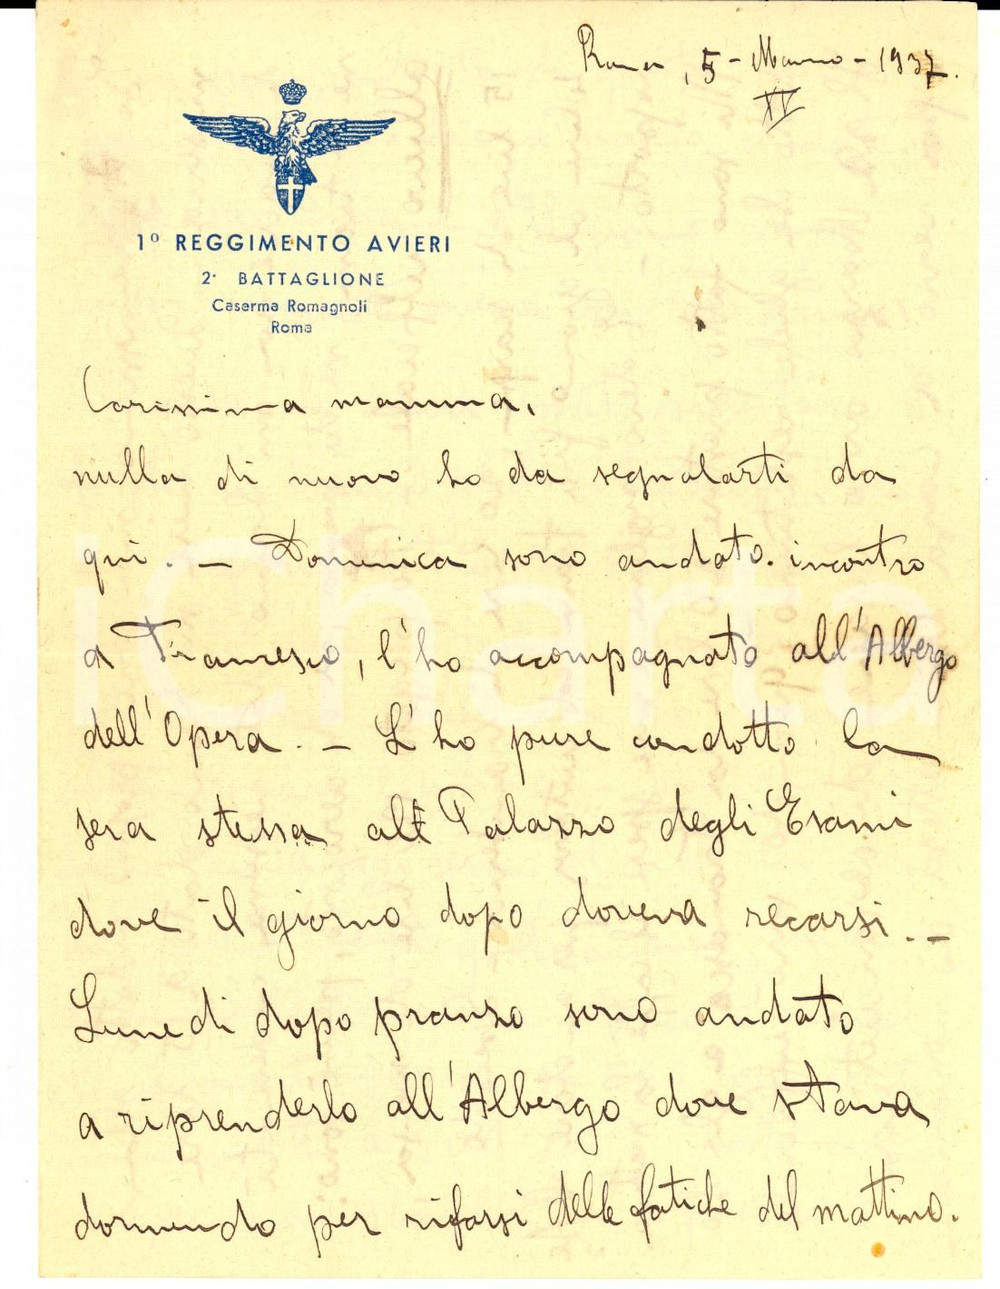 Roma, 5 - Marzo - 1937.
XV
1º REGGIMENTO AVIERI
2º BATTAGLIONE
Caserma Romagnoli
Roma
Carissima mamma,
nulla di nuovo ho da segnalarti da
qui. - Domenica sono andato incontro
a Francesco, l'ho accompagnato all'Albergo
dell'Opera. - L'ho pure condotto la
sera stessa al Palazzo degli Esami
dove il giorno dopo doveva recarsi. -
Lunedì dopo pranzo sono andato
a riprenderlo all'Albergo dove stava
dormendo per rifarsi delle fatiche del mattino.
iCharta